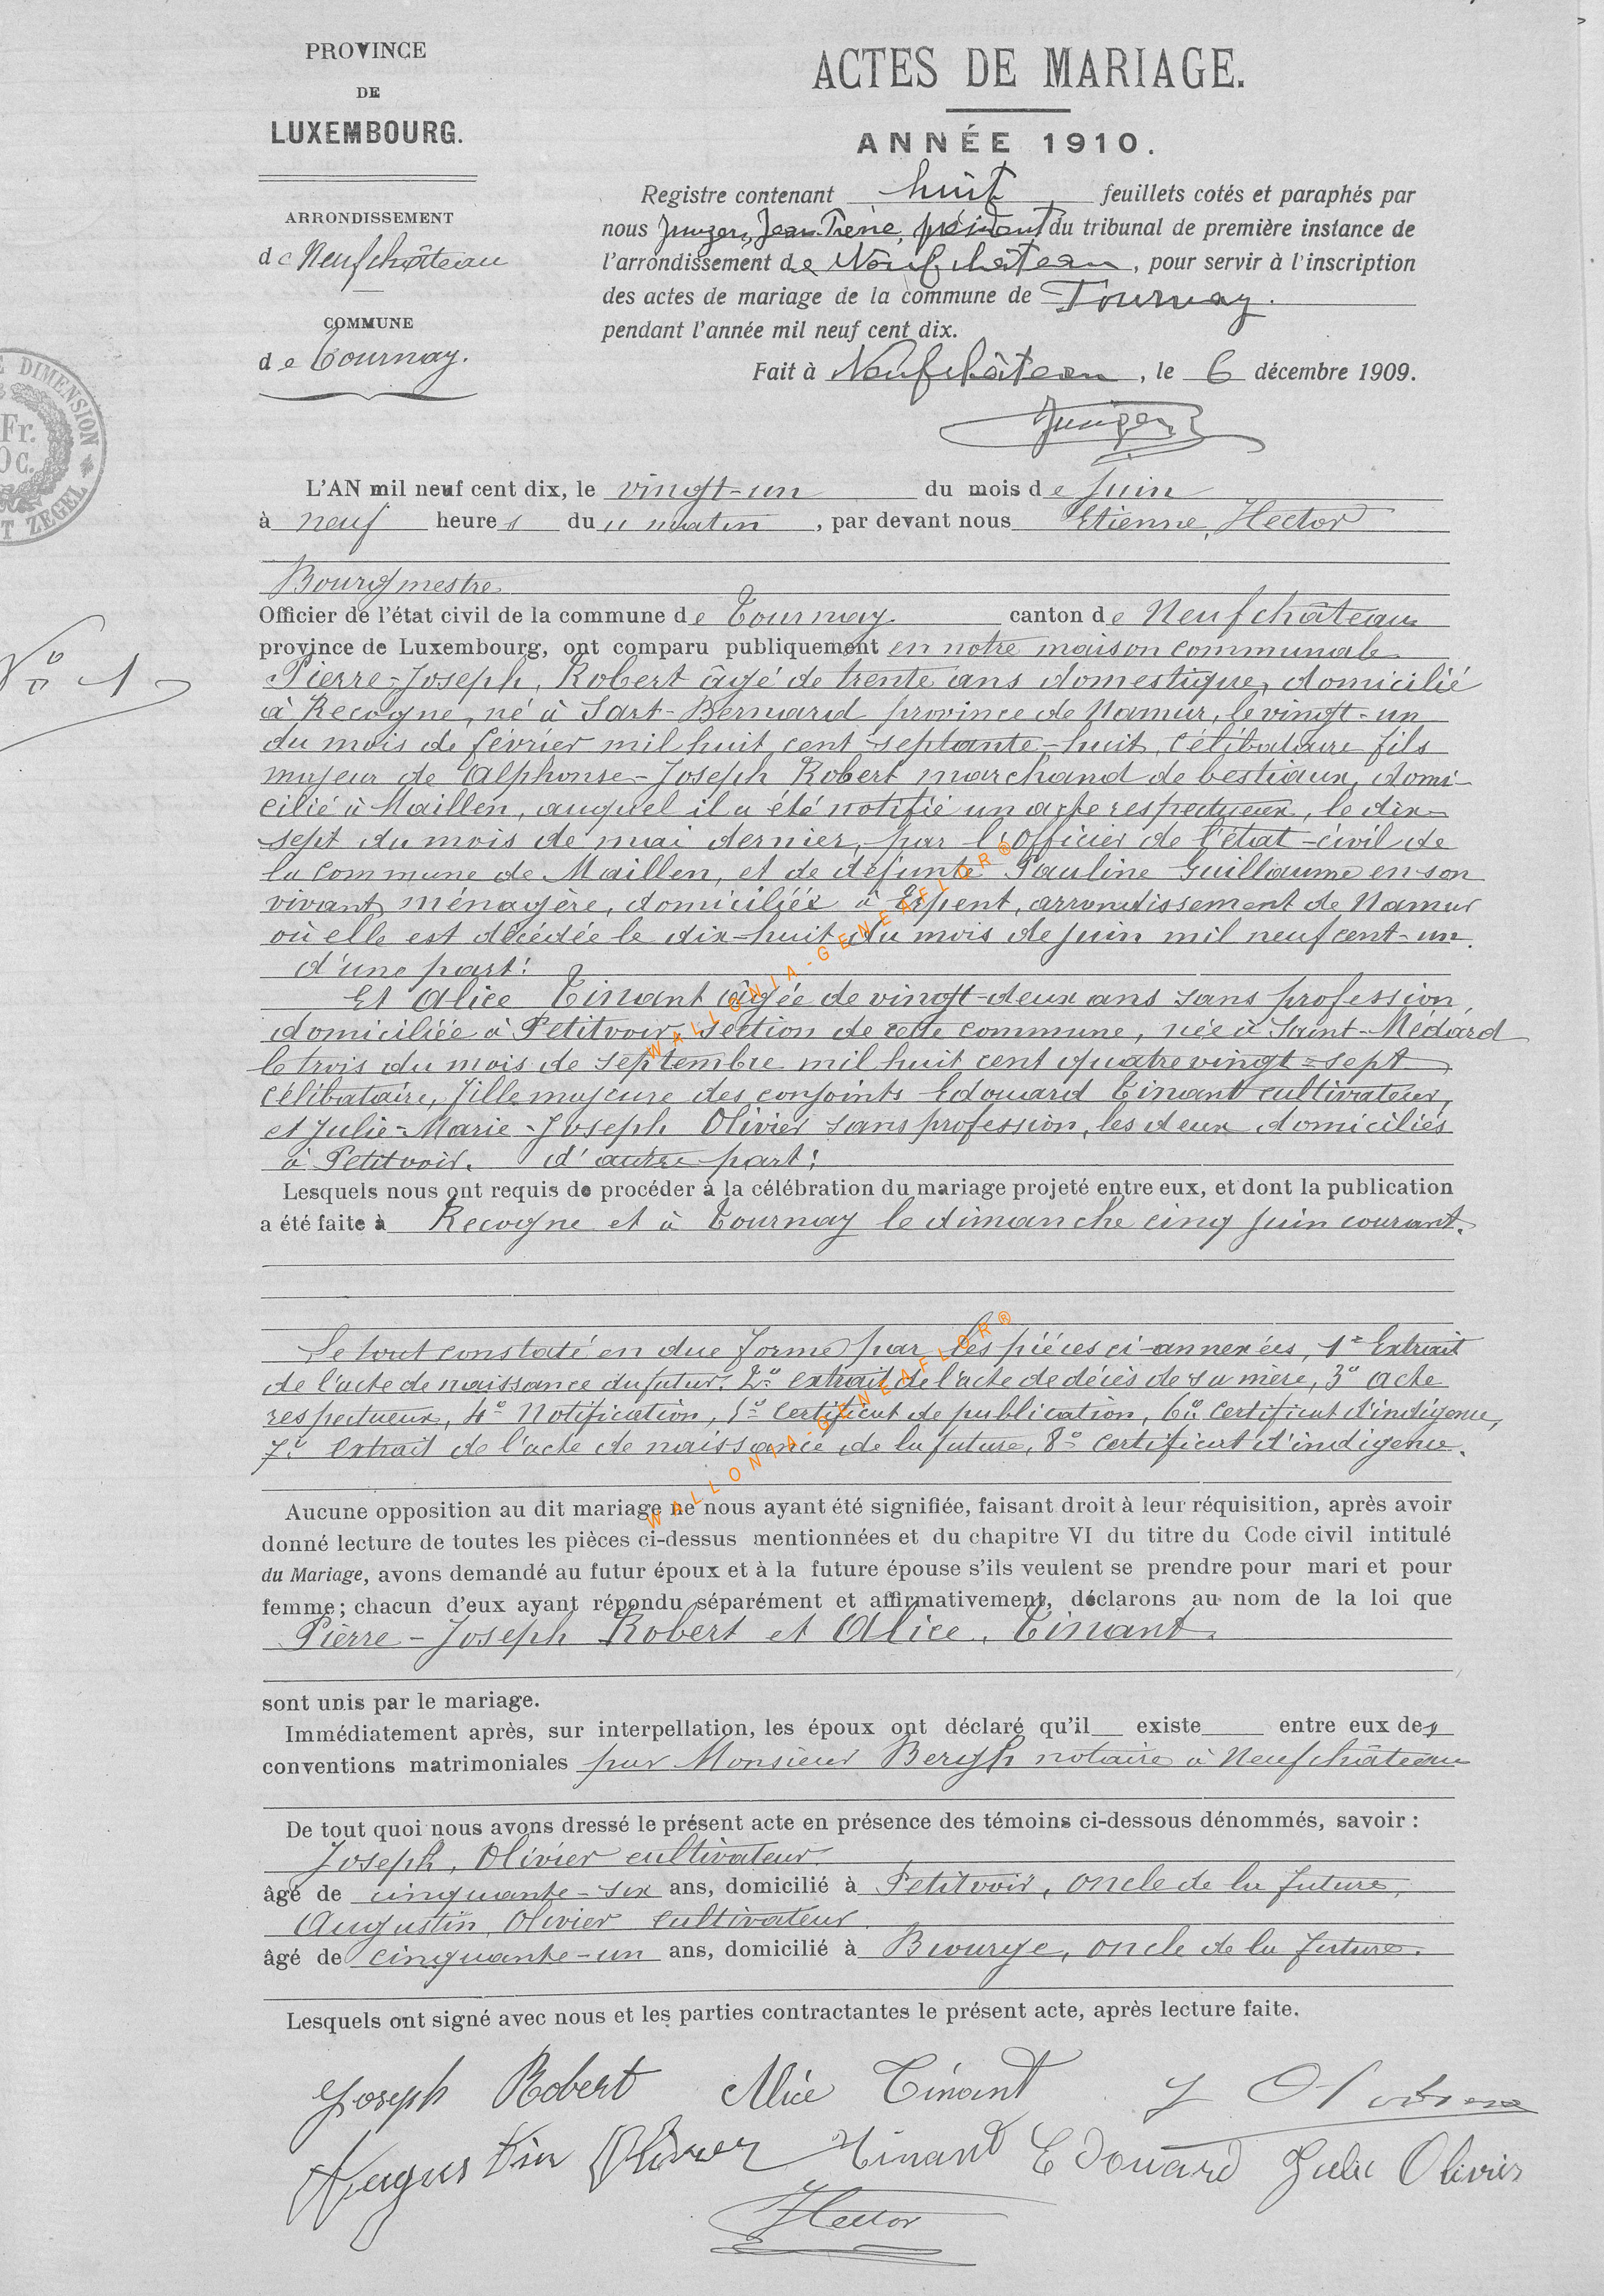 PROVINCE
DE
LUXEMBOURG.
ARRONDISSEMENT
de Neufchâteau
COMMUNE
de Tournay.
ACTES DE MARIAGE.
ANNÉE 1910.
Registre contenant huit feuillets cotés et paraphés par
nous Jean président du tribunal de première instance de
l'arrondissement de Neufchâteau, pour servir à l'inscription
des actes de mariage de la commune de Tournay.
pendant l'année mil neuf cent dix.
Fait à Neufchâteau, le 6 décembre 1909.
DIMENSION
Fr.
C.
ZEGEL
L'AN mil neuf cent dix, le vingt-un du mois de Juin
à neuf heures du matin, par devant nous Etienne, Hector
Bourgmestre
Officier de l'état civil de la commune de Tournay canton de Neufchâteau
province de Luxembourg, ont comparu publiquement en notre maison communale
No 1
Pierre-Joseph, Robert âgé de trente ans domestique, domicilié
à Recogne, né à Sart-Bernard province de Namur, le vingt-un
du mois de février mil huit cent septante-huit, célibataire fils
majeur de Alphonse-Joseph Robert marchand de bestiaux, domi-
cilié à Maillen, auquel il a été notifié un acte respectueux, le dix-
sept du mois de mai dernier, par l'Officier de l'état-civil de
la Commune de Maillen, et de défunte Pauline Guillaume en son
vivant ménagère, domiciliée à Erpent, arrondissement de Namur
où elle est décédée le dix-huit du mois de juin mil neuf cent-un.
d'une part:
Et Alice Tinant âgée de vingt-deux ans sans profession,
domiciliée à Petitvoir section de cette commune, née à Saint-Médard
le trois du mois de septembre mil huit cent quatre vingt-sept
célibataire, fille majeure des conjoints Edouard Tinant cultivateur,
et Julie-Marie-Joseph Olivier sans profession, les deux domiciliés
à Petitvoir. d'autre part:
Lesquels nous ont requis de procéder à la célébration du mariage projeté entre eux, et dont la publication
a été faite à Recogne et à Tournay le dimanche cinq juin courant.
Le tout constaté en due forme par les pièces ci-annexées, 1o Extrait
de l'acte de naissance du futur. 2o extrait de l'acte de décès de sa mère, 3o acte
respectueux, 4o Notification, 5o Certificat de publication, 6o Certificat d'indigence,
7o extrait de l'acte de naissance de la future, 8o Certificat d'indigence.
Aucune opposition au dit mariage ne nous ayant été signifiée, faisant droit à leur réquisition, après avoir
donné lecture de toutes les pièces ci-dessus mentionnées et du chapitre VI du titre du Code civil intitulé
du Mariage, avons demandé au futur époux et à la future épouse s'ils veulent se prendre pour mari et pour
femme; chacun d'eux ayant répondu séparément et affirmativement, déclarons au nom de la loi que
Pierre-Joseph Robert et Alice, Tinant.
sont unis par le mariage.
Immédiatement après, sur interpellation, les époux ont déclaré qu'il existe entre eux des
conventions matrimoniales par Monsieur Bergh notaire à Neufchâteau
De tout quoi nous avons dressé le présent acte en présence des témoins ci-dessous dénommés, savoir :
Joseph, Olivier cultivateur.
âgé de cinquante-six ans, domicilié à Petitvoir, oncle de la future,
Augustin, Olivier cultivateur.
âgé de cinquante-un ans, domicilié à oncle de la future.
Lesquels ont signé avec nous et les parties contractantes le présent acte, après lecture faite.
Joseph Robert Alice Tinant J Olivier
Augustin Olivier Tinant Edouard Julie Olivier
Hector
WALLONIA-GENEAFLOR®
WALLONIA-GENEAFLOR®